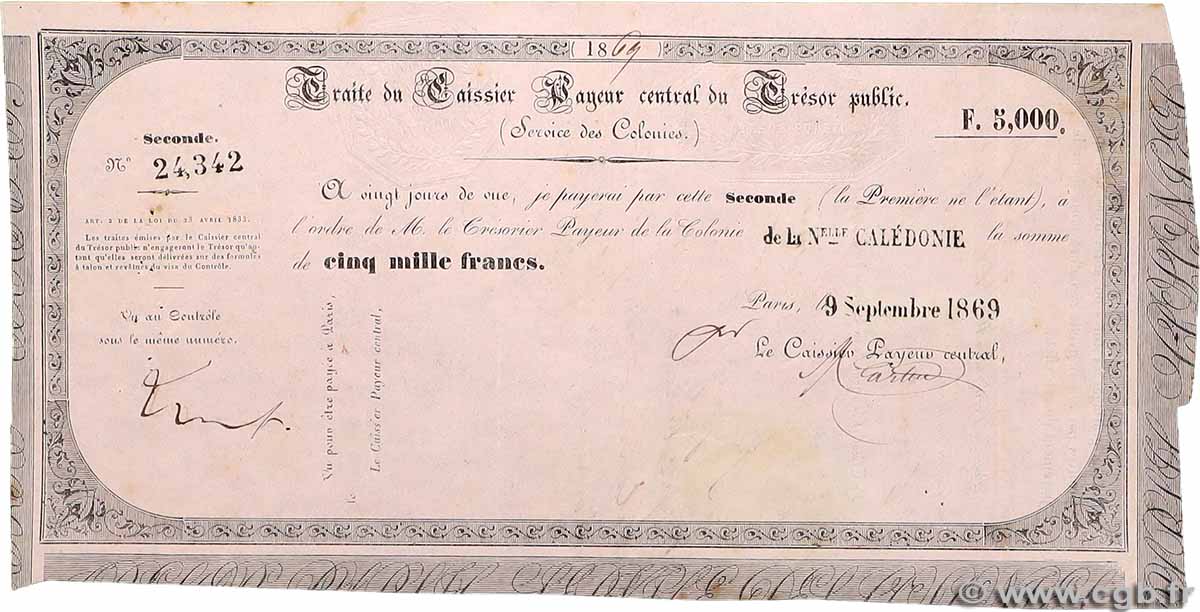 1869
Traite du Caissier Payeur central du Trésor public.
(Service des Colonies.)
F. 5,000.
Seconde.
N° 24,342
ART. 2 DE LA LOI DU 23 AVRIL 1833.
Les traites émises par le Caissier central
du Trésor public n'engageront le Trésor qu'au-
tant qu'elles seront délivrées sur des formules
à talon et revêtues du visa du Contrôle.
Vu au Contrôle
sous le même numéro.
A vingt jours de vue, je payerai par cette Seconde (la Première ne l'étant), à
l'ordre de M. le Trésorier Payeur de la Colonie de la Nelle CALÉDONIE la somme
de cinq mille francs.
Vu pour être payée à Paris,
le
Le Caissier Payeur central,
Paris, le 9 Septembre 1869
Le Caissier Payeur central,
© www.cgb.fr